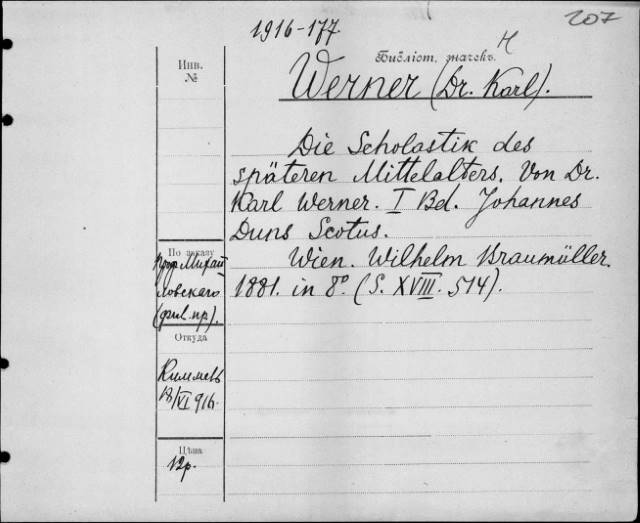 1916-177
207
Инв.
№
Библіот. значекъ. И
Werner (Dr. Karl).
Die Scholastik des
späteren Mittelalters. Von Dr.
Karl Werner. I Bd. Johannes
Duns Scotus.
Wien. Wilhelm Braumüller.
1881. in 8º. (S. XVIII. 514).
По заказу
проф. Михай
ловскаго
(фил. пр).
Откуда
Киммель
18/VI 916.
Цѣна
12р.